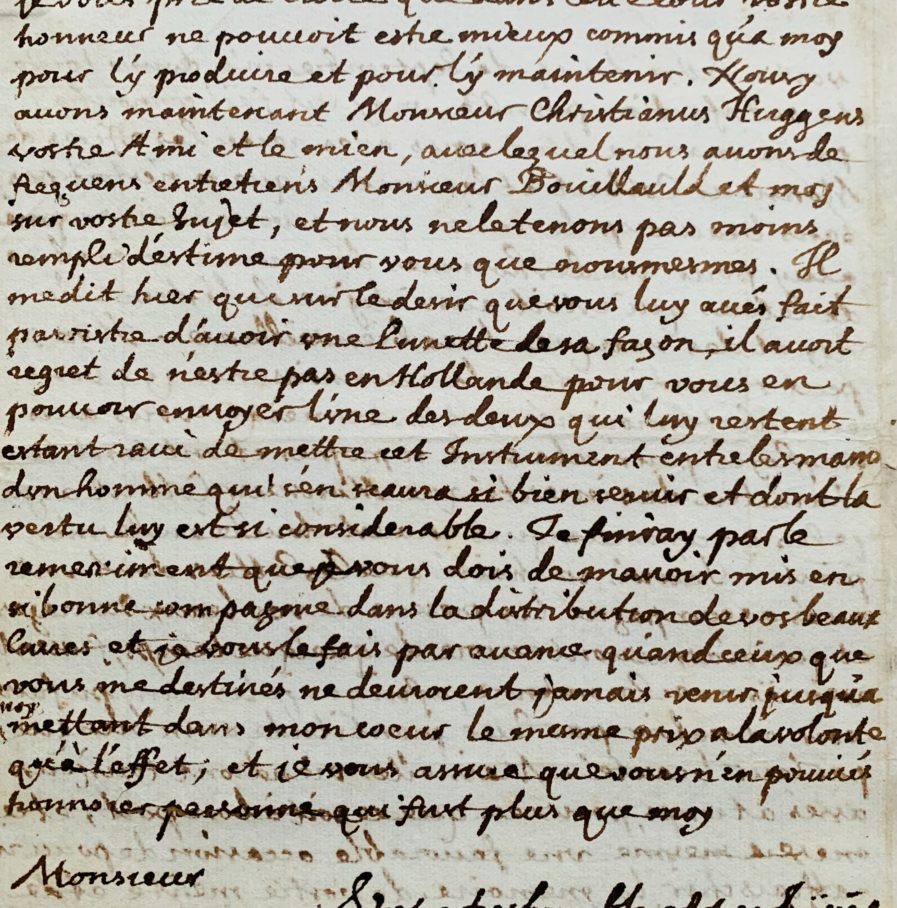 je vous prie de croire que dans ce vostre
honneur ne pouuoit estre mieux commis qu'a moy
pour l'y produire et pour l'y maintenir. Nous y
auons maintenant Monsieur Christianus Huggens
vostre Ami et le mien, auec lequel nous auons de
frequens entretiens Monsieur Bouillauld et moy
sur vostre sujet, et nous ne le tenons pas moins
rempli d'estime pour vous que nousmesmes. Il
me dit hier que sur le desir que vous luy aués fait
paroistre d'auoir vne lunette de sa façon, il auoit
regret de n'estre pas en Hollande pour vous en
pouuoir enuoyer l'vne des deux qui luy restent
estant raui de mettre cet Instrument entre les mains
d'vn homme qui s'en scaura si bien seruir et dont la
vertu luy est si considerable. Je finiray par le
remerciment que je vous dois de m'auoir mis en
si bonne compagnie dans la distribution de vos beaux
liures et je vous le fais par auance quand ceux que
vous me destinés ne deuroient jamais venir jusqu'a
moy
mettant dans mon coeur le mesme prix a la volonte
qu'à l'effet; et je vous assure que vous n'en pouuiés
honnorer personne qui fust plus que moy
Monsieur